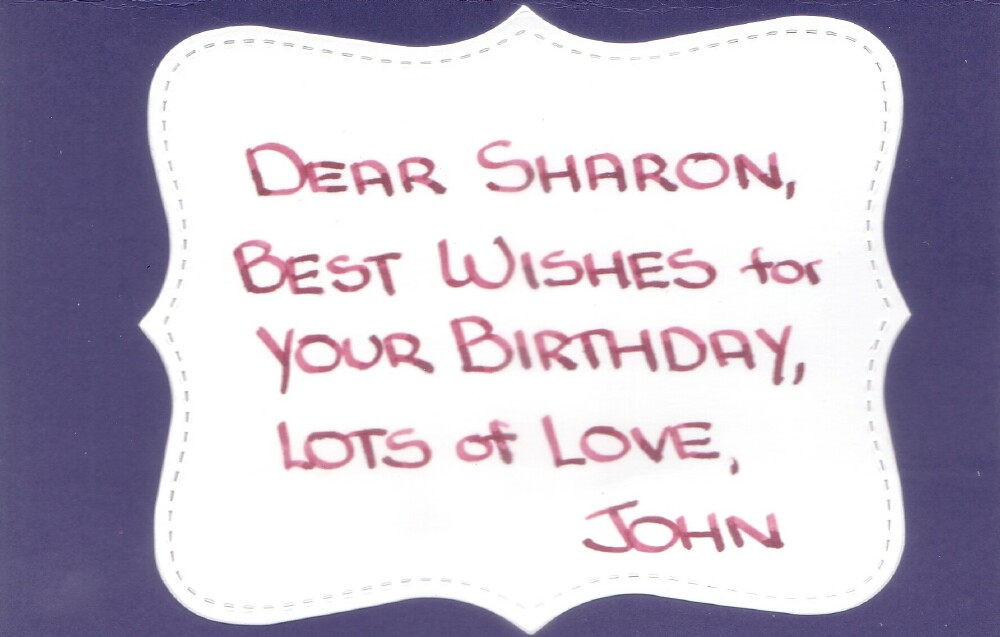 DEAR SHARON,
BEST WISHES for
YOUR BIRTHDAY,
LOTS of LOVE,
JOHN